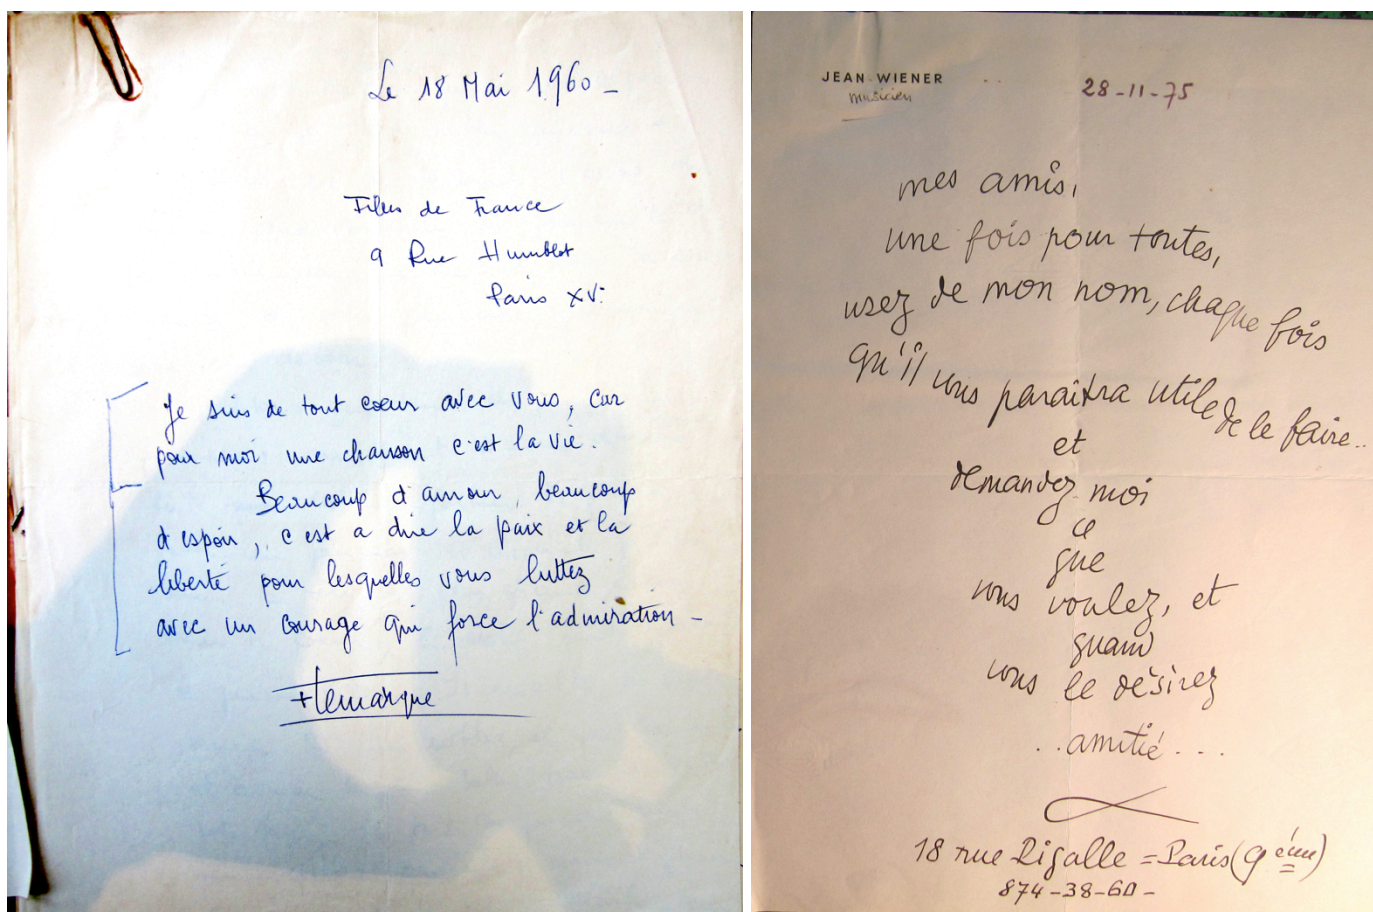 Le 18 Mai 1960 -
Films de France
9 Rue Humblot
Paris XVe
Je suis de tout coeur avec vous, car
pour moi une chanson c'est la vie.
Beaucoup d'amour, beaucoup
d'espoir, c'est a dire la paix et la
liberté pour lesquelles vous luttez
avec un courage qui force l'admiration -
Lemarque
JEAN WIENER
musicien
28-11-75
mes amis,
une fois pour toutes,
usez de mon nom, chaque fois
qu'il vous paraîtra utile de le faire..
et
demandez moi
ce
que
vous voulez, et
quand
vous le désirez
..amitié...
18 rue Pigalle = Paris (9ème)
874-38-60-